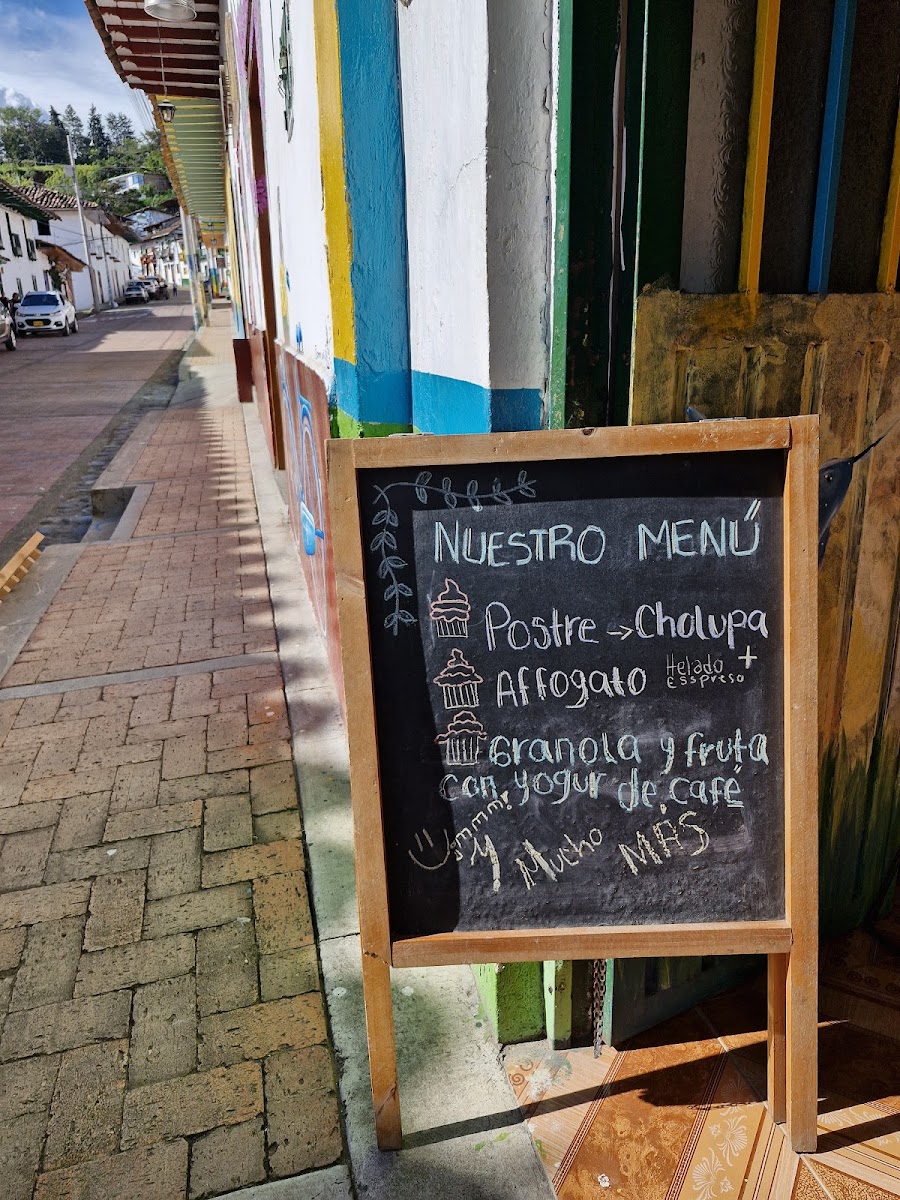 NUESTRO MENÚ
Postre → Cholupa
Affogato Helado +
Esspreso
Granola y fruta
con yogur de café
Y Mucho MÁS